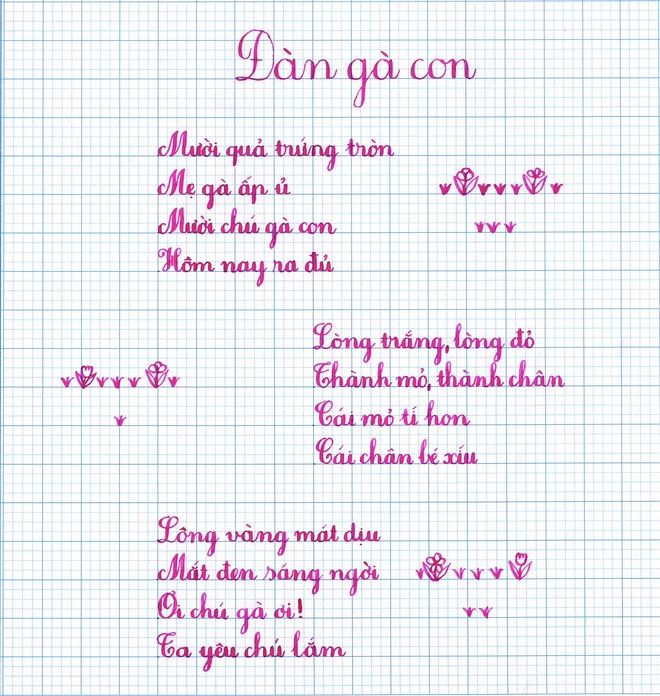 Đàn gà con
Mười quả trứng tròn
Mẹ gà ấp ủ
Mười chú gà con
Hôm nay ra đủ
Lòng trắng, lòng đỏ
Thành mỏ, thành chân
Cái mỏ tí hon
Cái chân bé xíu
Lông vàng mát dịu
Mắt đen sáng ngời
Ơi chú gà ơi!
Ta yêu chú lắm